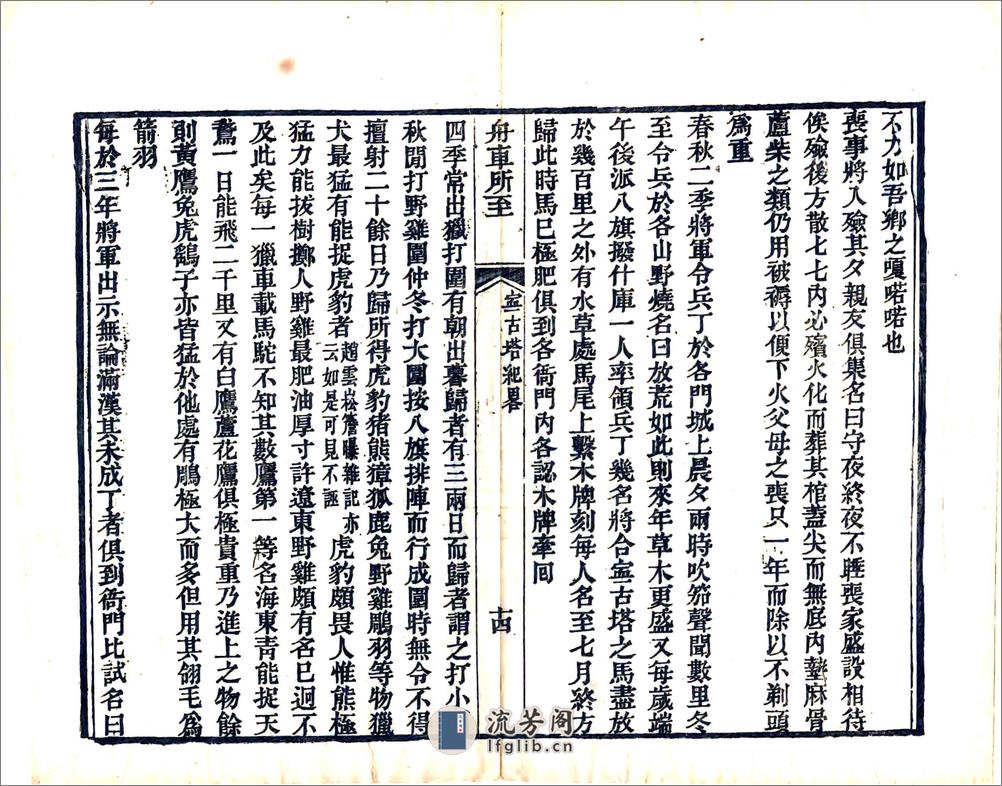 不力如吾鄉之嗄喏喏也
喪事將入殮其夕親友俱集名曰守夜終夜不睡喪家盛設相待
俟殮後方散七七內必殯火化而葬其棺蓋尖而無底內墊麻骨
蘆柴之類仍用被褥以便下火父母之喪只一年而除以不剃頭
爲重
春秋二季將軍令兵丁於各門城上晨夕兩時吹笳聲聞數里冬
至令兵於各山野燒名曰放荒如此則來年草木更盛又每歲端
午後派八旗撥什庫一人率領兵丁幾名將合寍古塔之馬盡放
於幾百里之外有水草處馬尾上繫木牌刻每人名至七月終方
歸此時馬已極肥俱到各衙門內各認木牌牽囘
舟車所至
寍古塔紀畧
十四
四季常出獵打圍有朝出暮歸者有三兩日而歸者謂之打小圍
秋間打野雞圍仲冬打大圍按八旗排陣而行成圍時無令不得
擅射二十餘日乃歸所得虎豹猪熊獐狐鹿兔野雞鵰羽等物獵
犬最猛有能捉虎豹者趙雲崧簷曝雜記亦云如是可見不誣虎豹頗畏人惟熊極
猛力能拔樹擲人野雞最肥油厚寸許遼東野雞頗有名已迥不
及此矣每一獵車載馬駝不知其數鷹第一等名海東青能捉天
鵞一日能飛二千里又有白鷹蘆花鷹俱極貴重乃進上之物餘
則黃鷹兔虎鷂子亦皆猛於他處有鵰極大而多但用其翎毛爲
箭羽
每於三年將軍出示無論滿漢其未成丁者俱到衙門比試名曰
流芳阁
lfglib.cn